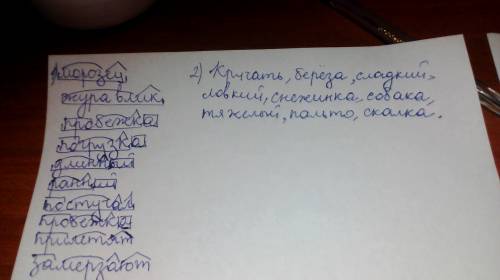 1) морозец,
журавлик,
пробежка
погрузка
длинный
ранний
постучал
пробежка
прилетят
замерзают
2) Кричать, берёза, сладкий,
ловкий, снежинка, собака,
тяжёлый, пальто, скалка.